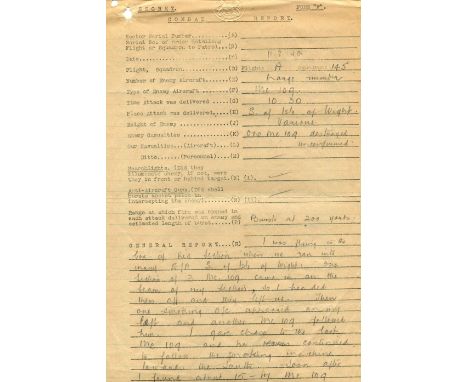 SECRET. FORM "F".
COMBAT REPORT.
Sector Serial Number (A)
Serial No. of Order Detailing
Flight or Squadron to Patrol (B)
Date (C)
Flight, Squadron (D) Flight: A 145
Number of Enemy Aircraft (E) large number
Type of Enemy Aircraft (F) Me 109
Time Attack was delivered (G)
Place Attack was delivered (H) S. of Isle of Wight.
Height of Enemy (J) Various
Enemy Casualties (K) One Me 109 destroyed
unconfirmed
Our Casualties (Aircraft) (L)
Ditto (Personnel) (M)
Searchlights, (Did they
illuminate enemy, if not, were
they in front or behind target. N (i).
Anti-Aircraft Guns, (Did shell
bursts assist pilot in
intercepting the enemy) (ii).
Range at which fire was opened in
each attack delivered on enemy and
estimated length of burst (P) Bursts at 200 yards.
GENERAL REPORT (R) I was flying in the
his section when we ran into
many E/A S. of Isle of Wight. One
section of 3 Me 109 came in on the
beam of my section so I headed
them off and they left us. Then
one smoking a/c appeared on my
left and another Me 109 followed
him. I gave chase to the last
Me 109 and he continued
to follow the smoking machine
towards the South. Soon after
I found about 15 Me 109